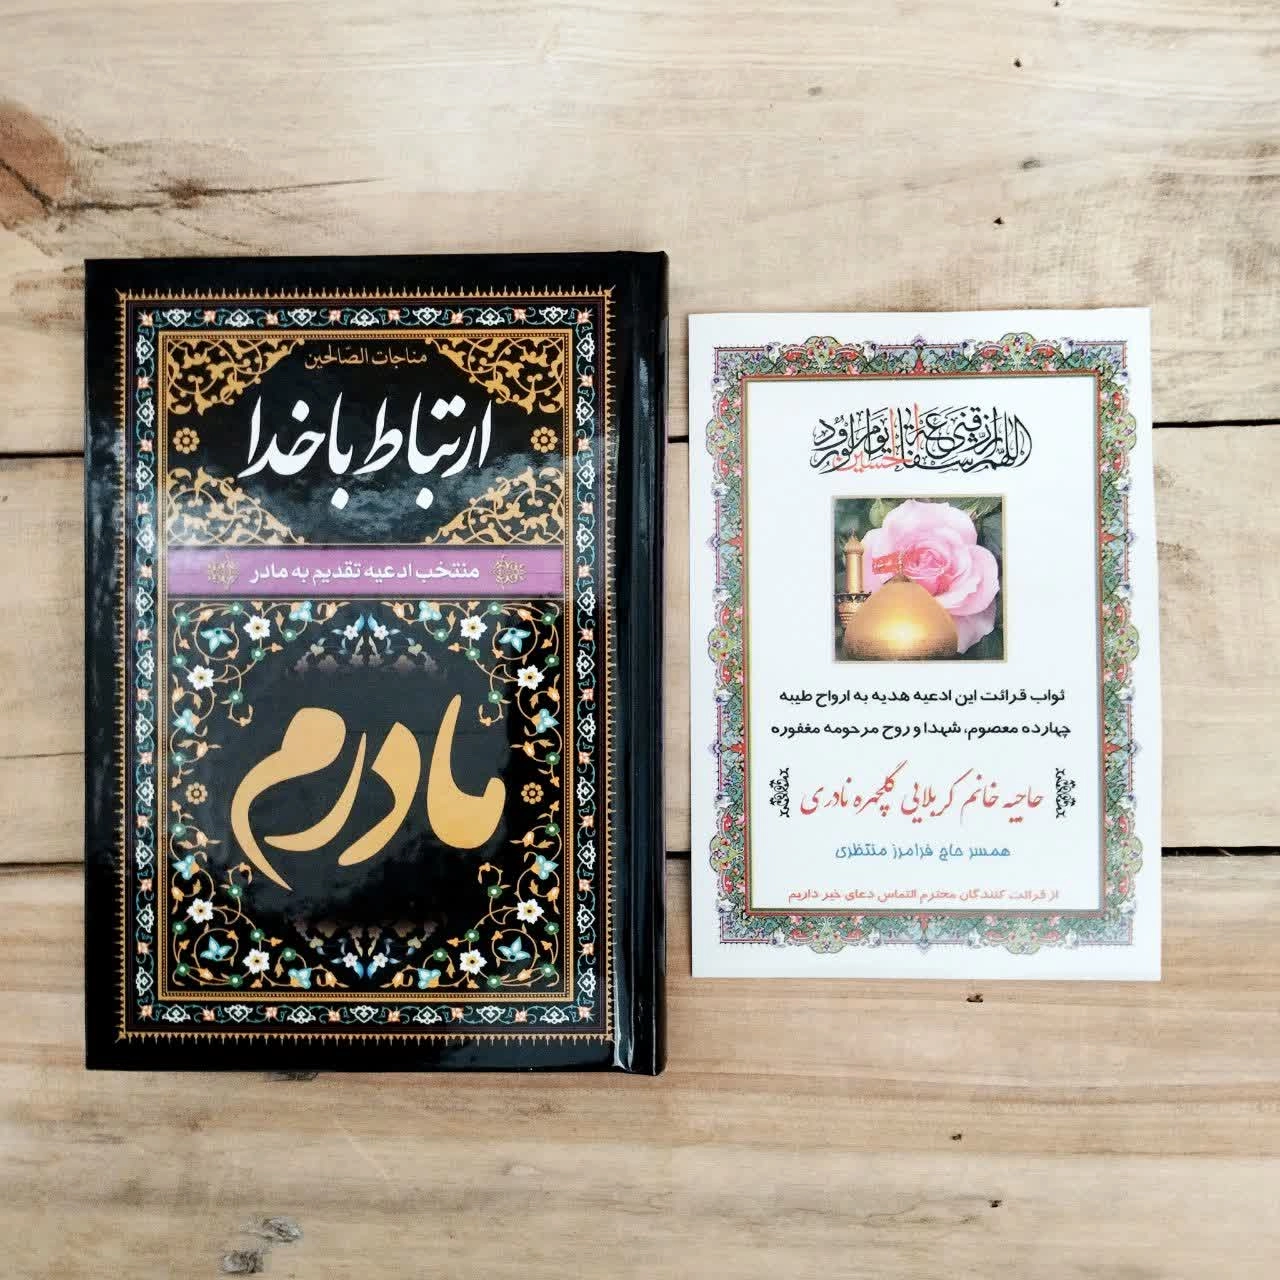 مناجات الصّالحین
ارتباط با خدا
منتخب ادعیه تقدیم به مادر
مادرم
اللهم ارزقنی شفاعة الحسین یوم الورود
ثواب قرائت این ادعیه هدیه به ارواح طیبه
چهارده معصوم، شهدا و روح مرحومه مغفوره
حاجیه خانم کربلایی گلچهره نادری
همسر حاج فرامرز منتظری
از قرائت کنندگان محترم التماس دعای خیر داریم